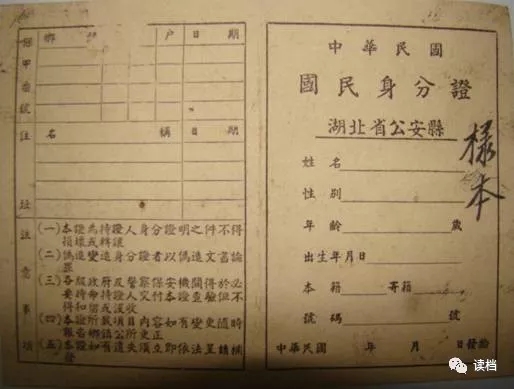 保甲番號
鄉 户 日 期
註 址
名 稱 日 期
注意事項
(一)本證為持證人身分證明之文件不得
損壞或轉讓
(二)偽造變造身分證者以偽造文書論
罪
(三)各級政府及警察保安機關於必
要得
扣留或沒收
(四)本證所載項目內容如有變更隨時
報 鄉鎮公所更正
(五)本證如有遺失須立即依法呈請補
發
中華民國
國民身分證
湖北省公安縣
樣本
姓名
性別
年齡 歲
出生年月日
本籍 寄籍
號碼 號
中華民國 年 月 日發給
读档